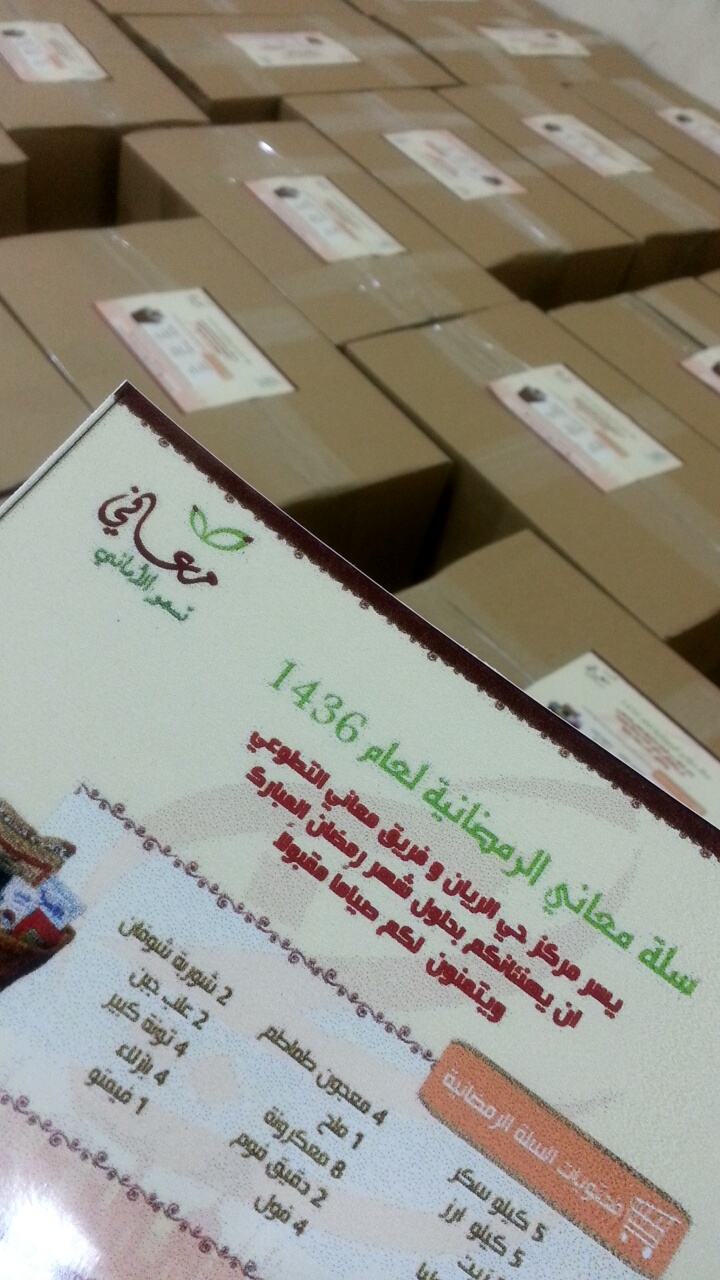 معاني
تسمر الأماني
سلة معاني الرمضانية لعام 1436
يسر مركز حي الريان و فريق معاني التطوعي
ان يهنئانكم بحلول شهر رمضان المبارك
ويتمنون لكم صياما مقبولا
محتويات السلة الرمضانية
5 كيلو سكر
5 كيلو ارز
زيت
4 معجون طماطم
1 ملح
8 معكرونة
2 دقيق فوم
4 فول
2 شوربة شوفان
2 علب جبن
4 تونة كبير
4 بازلاء
1 فيمتو